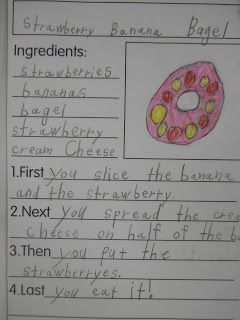 Strawberry Banana Bagel
Ingredients:
strawberries
bananas
bagel
strawberry
cream Cheese
1.First you slice the banana
and the strawberry.
2.Next you spread the crea
cheese on half of the ba
3.Then you put the
strawberryes.
4.Last you eat it!